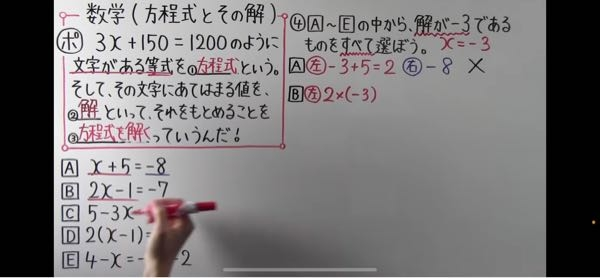 数学(方程式とその解)
ポ 3x+150=1200のように
文字がある等式を①方程式という。
そして、その文字にあてはまる値を、
②解といって、それをもとめることを
③方程式を解くっていうんだ!
A x+5=-8
B 2x-1=-7
C 5-3x
D 2(x-1)=
E 4-x= 2
④A~Eの中から、解が-3である
ものをすべて選ぼう。x=-3
A 左-3+5=2 右-8 ×
B 左2×(-3)